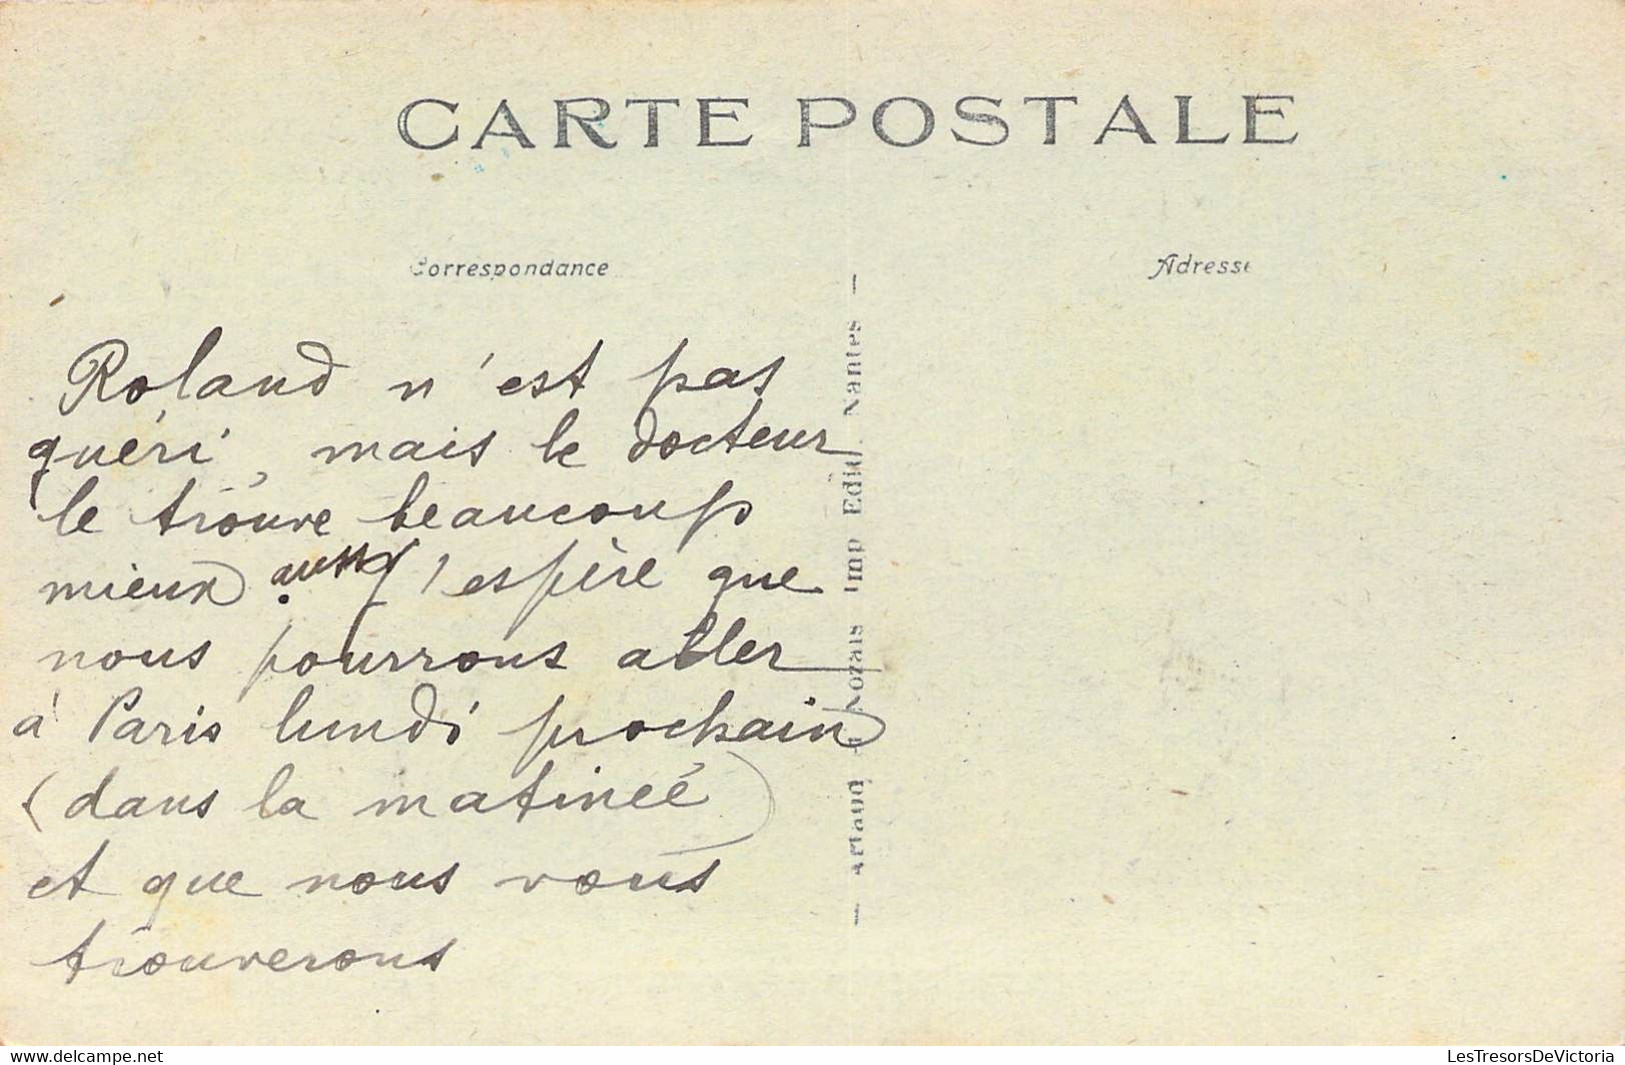 CARTE POSTALE
Correspondance
Adresse
Roland n'est pas
guéri, mais le docteur
le trouve beaucoup
mieux aussi j'espère que
nous pourrons aller
à Paris lundi prochain
(dans la matineé)
et que nous vous
trouverons
— Artaud Nozais Imp Edit. Nantes —
www.delcampe.net
LesTresorsDeVictoria